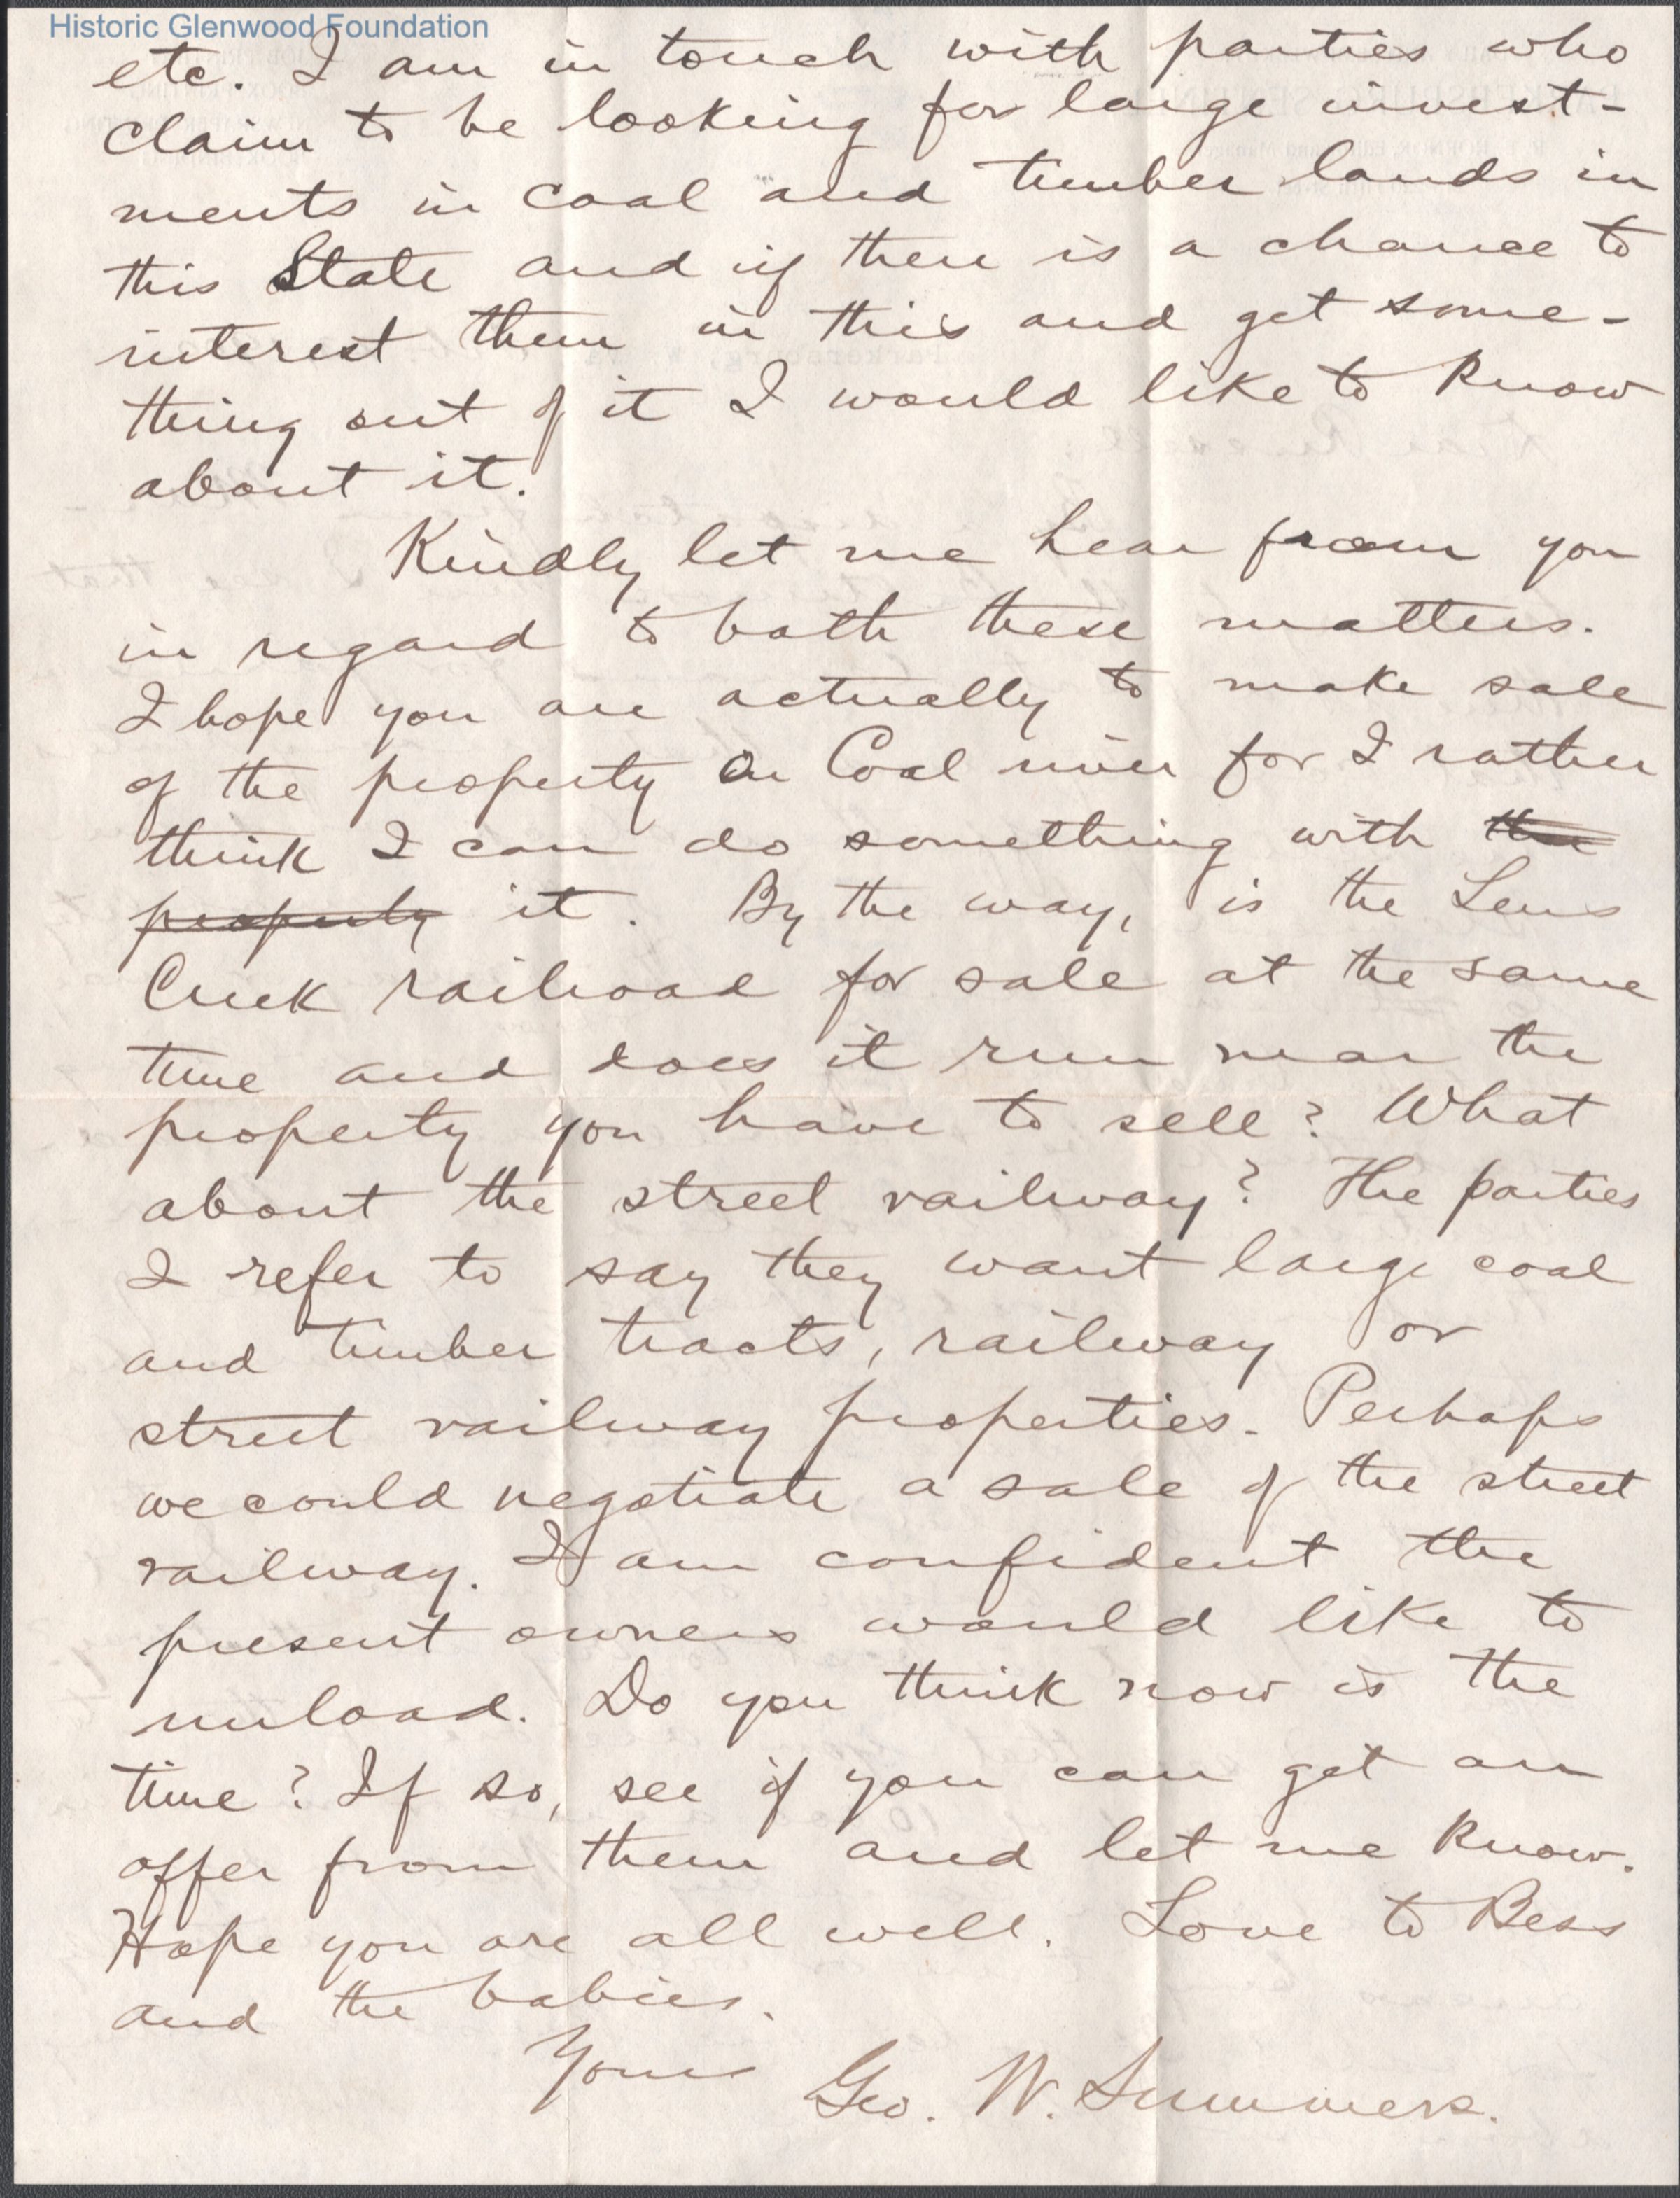 Historic Glenwood Foundation
etc. I am in touch with parties who
claim to be looking for large invest-
ments in coal and timber lands in
this State and if there is a chance to
interest them in this and get some-
thing out of it I would like to know
about it.
Kindly let me hear from you
in regard to both these matters.
I hope you are actually to make sale
of the property on Coal river for I rather
think I can do something with the
property it. By the way, is the Lens
Creek railroad for sale at the same
time and does it run near the
property you have to sell? What
about the street railway? The parties
I refer to say they want large coal
and timber tracts, railway or
street railway properties. Perhaps
we could negotiate a sale of the street
railway. I am confident the
present owners would like to
unload. Do you think now is the
time? If so, see if you can get an
offer from them and let me know.
Hope you are all well. Love to Bess
and the babies.
Yours
Geo. W. Summers.